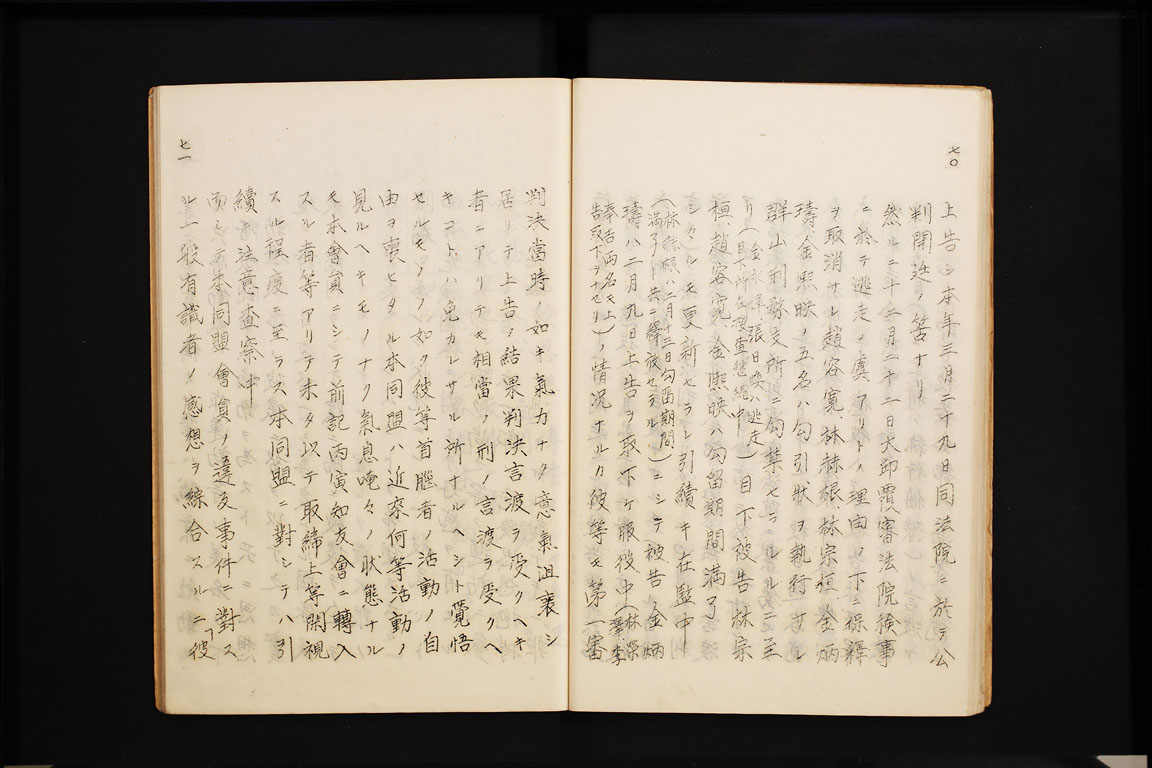 七〇
上告シ本年三月二十九日同法院ニ於テ公
判開廷ノ筈ナリ
然ルニ十二月二十二日大邱覆審法院検事
ニ於テ逃走ノ虞アリトノ理由ノ下ニ保釋
ヲ取消サレ趙容寛、林赫根、林宗桓、金炳
璹、金熙映ノ五名ハ勾引狀ヲ執行サレ
群山刑務支所ニ勾禁セラルルニ至
リ(金永輝、張日煥ハ逃走
目下所在捜査継続中)目下被告林宗
桓、趙容寛、金熙映ハ勾留期間満了
シタルモ更新セラレ引續キ在監中
(林赫根ハ二月十三日勾留期間
満了ト共ニ釋放セラル)ニシテ被告金炳
璹ハ二月九日上告ヲ取下ケ服役中(林榮
澤、李
奉吉両名モ上
告取下ヲナセリ)ノ情況ナルカ彼等モ第一審
七一
判決當時ノ如キ氣力ナク意氣沮喪シ
居リテ上告ノ結果判決言渡ヲ受クヘキ
者ニアリテモ相當ノ刑ノ言渡ヲ受クヘ
キコトハ免カレサル所ナルヘシト覺悟
セルモノノ如ク彼等首脳者ノ活動ノ自
由ヲ喪ヒタル本同盟ハ近來何等活動ノ
見ルヘキモノナク氣息唵々ノ狀態ナル
モ本會員ニシテ前記丙寅知友會ニ轉入
スル者等アリテ未タ以テ取締上等閑視
スル程度ニ至ラス本同盟ニ對シテハ引
續キ注意査察中
而シテ本同盟會員ノ違反事件ニ對ス
ル一般有識者ノ感想ヲ綜合スルニ「彼